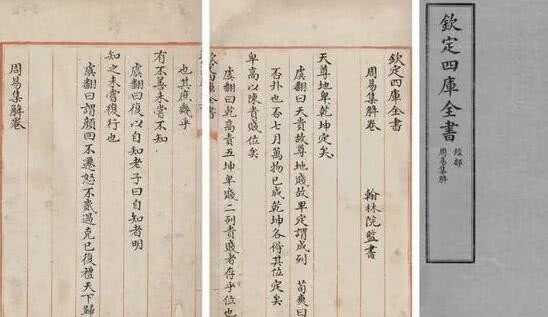 欽定四庫全書
經部
周易集解
欽定四庫全書
周易集解卷　翰林院監書
天尊地卑乾坤定矣
虞翻曰天貴故尊地賤故卑定謂成列　荀爽曰
否卦也否七月萬物已成乾坤各得其位定矣
卑高以陳貴賤位矣
虞翻曰乾高貴五坤卑賤二列貴賤者存乎位也
也其庶幾乎
有不善未嘗不知
虞翻曰復以自知老子曰自知者明
知之未嘗復行也
虞翻曰謂顏回不遷怒不貳過克已復禮天下歸
周易集解卷